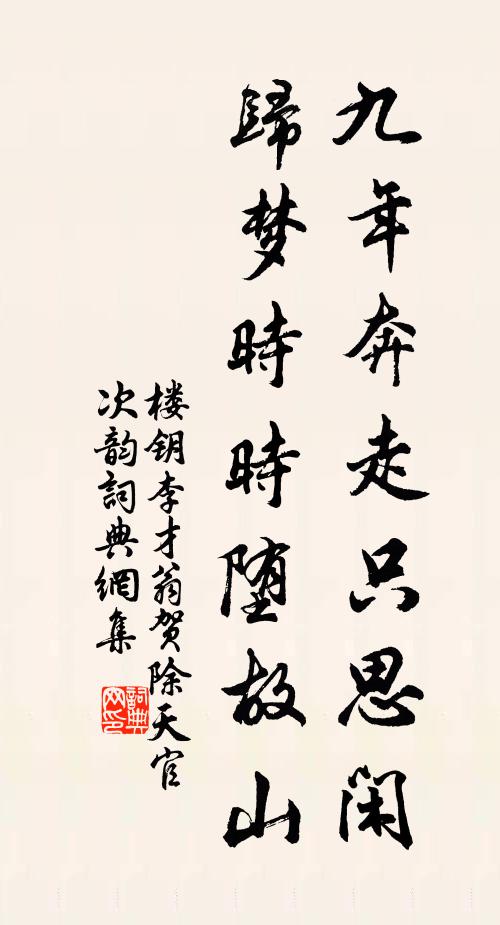 九年奔走只思闲
歸梦時時堕故山
楼钥李才翁贺除天官
次韵詞典網集
詞典网印